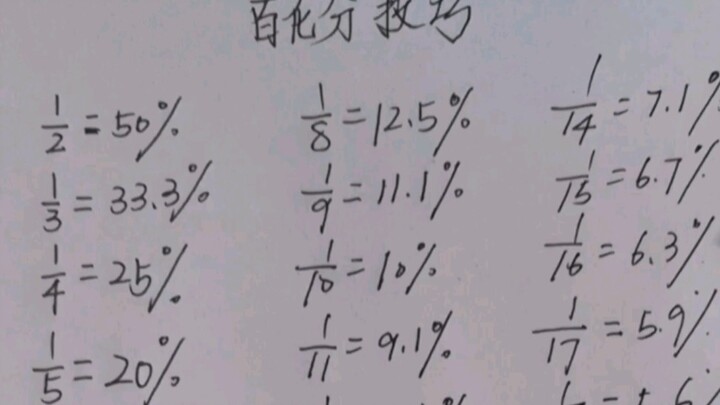 百化分技巧
1/2 = 50%
1/3 = 33.3%
1/4 = 25%
1/5 = 20%
1/8 = 12.5%
1/9 = 11.1%
1/10 = 10%
1/11 = 9.1%
1/14 = 7.1%
1/15 = 6.7%
1/16 = 6.3%
1/17 = 5.9%